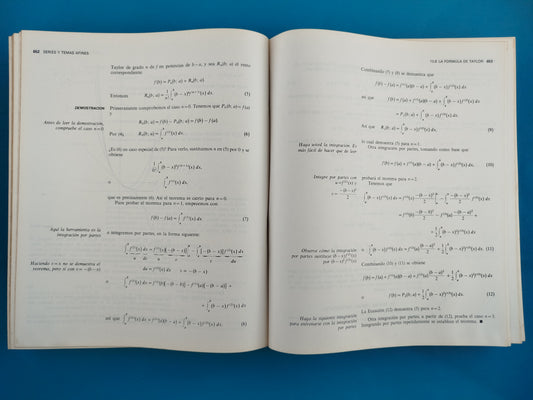 662 SERIES Y TEMAS AFINES
Taylor de grado n de f en potencias de b − a, y sea Rₙ(b; a) el resto
correspondiente
f(b) = Pₙ(b; a) + Rₙ(b; a)
Entonces Rₙ(b; a) = 1/n! ∫ₐᵇ (b − x)ⁿ f⁽ⁿ⁺¹⁾(x) dx. (5)
DEMOSTRACION Primeramente comprobemos el caso n = 0. Tenemos que P₀(b; a) = f(a)
y
Antes de leer la demostración, R₀(b; a) = f(b) − P₀(b; a) = f(b) − f(a).
compruebe el caso n = 0 Por (4), R₀(b; a) = ∫ₐᵇ f⁽¹⁾(x) dx. (6)
¿Es (6) un caso especial de (5)? Para verlo, sustituimos n en (5) por 0 y se
obtiene
1/0! ∫ₐᵇ (b − x)⁰ f⁽¹⁾(x) dx,
o ∫ₐᵇ f⁽¹⁾(x) dx,
que es precisamente (6). Así el teorema es cierto para n = 0.
Para probar el teorema para n = 1, empecemos con
f(b) − f(a) = ∫ₐᵇ f⁽¹⁾(x) dx (7)
Aquí la herramienta es la
integración por partes
e integremos por partes, en la forma siguiente:
Haciendo v = x no se demuestra el
teorema, pero sí con v = −(b − x)
du = f⁽²⁾(x) dx v = −(b − x)
o
así que ∫ₐᵇ f⁽¹⁾(x) dx = f⁽¹⁾(a)(b − a) + ∫ₐᵇ (b − x)f⁽²⁾(x) dx. (8)
11.6 LA FORMULA DE TAYLOR 663
Combinando (7) y (8) se demuestra que
f(b) − f(a) = f⁽¹⁾(a)(b − a) + ∫ₐᵇ (b − x)f⁽²⁾(x) dx
así que f(b) = f(a) + f⁽¹⁾(a)(b − a) + ∫ₐᵇ (b − x)f⁽²⁾(x) dx
= P₁(b; a) + ∫ₐᵇ (b − x)f⁽²⁾(x) dx.
Así que R₁(b; a) = ∫ₐᵇ (b − x)f⁽²⁾(x) dx, (9)
lo cual demuestra (5) para n = 1.
Otra integración por partes, tomando como base que
Haga usted la integración. Es
más fácil de hacer que de leer
f(b) = f(a) + f⁽¹⁾(a)(b − a) + ∫ₐᵇ (b − x)f⁽²⁾(x) dx, (10)
probará el teorema para n = 2.
Integre por partes con Tenemos que
u = f⁽²⁾(x) y
v = −(b − x)²/2
∫ₐᵇ (b − x)f⁽²⁾(x) dx = f⁽²⁾(x) −(b − x)²/2 |ₐᵇ − ∫ₐᵇ −(b − x)²/2 f⁽³⁾(x) dx
Observe cómo la integración
por partes sustituye (b − x)f⁽²⁾(x)
por (b − x)²f⁽³⁾(x)
∫ₐᵇ (b − x)f⁽²⁾(x) dx = f⁽²⁾(a)(b − a)²/2 + 1/2 ∫ₐᵇ (b − x)²f⁽³⁾(x) dx. (11)
Combinando (10) y (11) se obtiene
f(b) = f(a) + f⁽¹⁾(a)(b − a) + f⁽²⁾(a)(b − a)²/2 + 1/2 ∫ₐᵇ (b − x)²f⁽³⁾(x) dx,
o f(b) = P₂(b; a) + 1/2 ∫ₐᵇ (b − x)²f⁽³⁾(x) dx. (12)
La Ecuación (12) demuestra (5) para n = 2.
Haga la siguiente integración
para entrenarse con la integración
por partes
Otra integración por partes, a partir de (12), prueba el caso n = 3.
Integrando por partes repetidamente se establece el teorema. ■